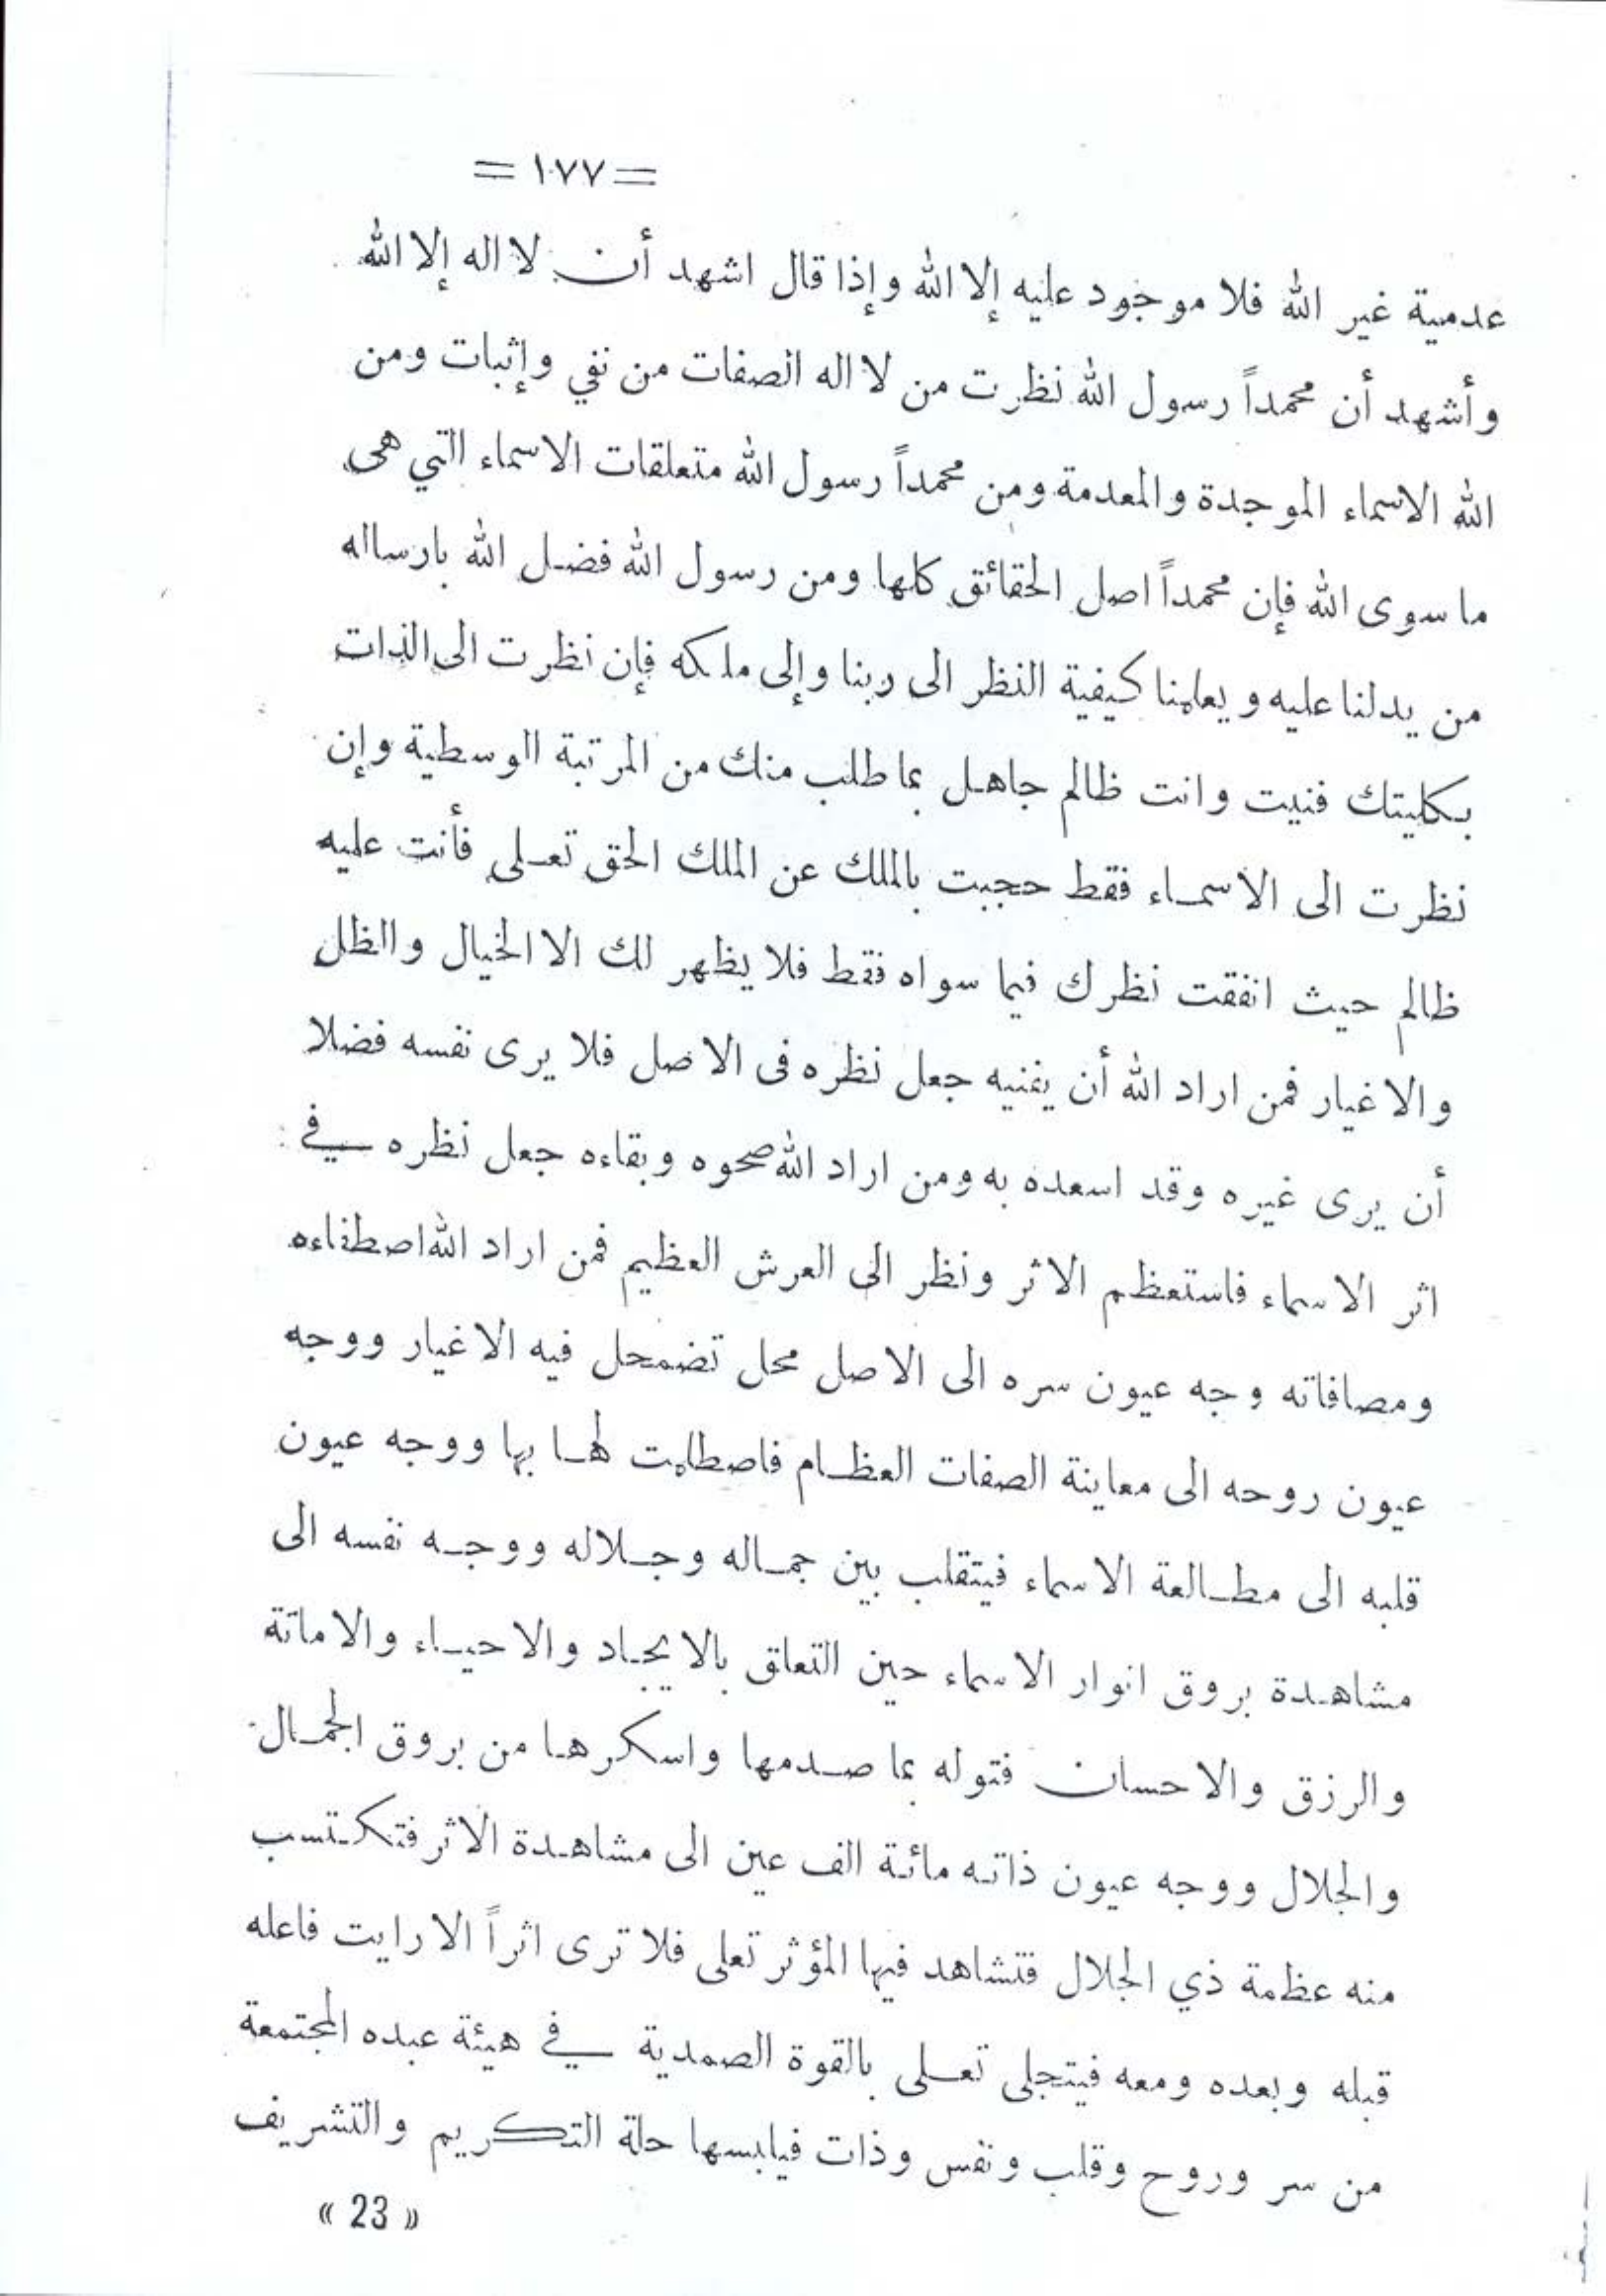 = ١٧٧ =
عدمية غير الله فلا موجود عليه إلا الله وإذا قال اشهد أن لا اله إلا الله
وأشهد أن محمداً رسول الله نظرت من لا اله الصفات من نفي وإثبات ومن
الله الاسماء الموجدة والمعدمة ومن محمداً رسول الله متعلقات الاسماء التي هى
ما سوى الله فإن محمداً اصل الحقائق كلها ومن رسول الله فضل الله بارساله
من يدلنا عليه ويعلمنا كيفية النظر الى ربنا وإلى ملكه فإن نظرت الى الذات
بكليتك فنيت وانت ظالم جاهل بما طلب منك من المرتبة الوسطية وإن
نظرت الى الاسماء فقط حجبت بالملك عن الملك الحق تعلى فأنت عليه
ظالم حيث انفقت نظرك فيما سواه فقط فلا يظهر لك الا الخيال والظل
والاغيار فمن اراد الله أن يفنيه جعل نظره فى الاصل فلا يرى نفسه فضلا
أن يرى غيره وقد اسعده به ومن اراد الله صحوه وبقاءه جعل نظره في
اثر الاسماء فاستعظم الاثر ونظر الى العرش العظيم فمن اراد الله اصطفاءه
ومصافاته وجه عيون سره الى الاصل محل تضمحل فيه الاغيار ووجه
عيون روحه الى معاينة الصفات العظام فاصطلمت لها بها ووجه عيون
قلبه الى مطالعة الاسماء فيتقلب بين جماله وجلاله ووجه نفسه الى
مشاهدة بروق انوار الاسماء حين التعلق بالايجاد والاحياء والاماتة
والرزق والاحسان فتوله بما صدمها واسكرها من بروق الجمال
والجلال ووجه عيون ذاته مائة الف عين الى مشاهدة الاثر فتكتسب
منه عظمة ذي الجلال فتشاهد فيها المؤثر تعلى فلا ترى اثراً الا رايت فاعله
قبله وبعده ومعه فيتجلى تعلى بالقوة الصمدية في هيئة عبده المجتمعة
من سر وروح وقلب ونفس وذات فيلبسها حلة التكريم والتشريف
« 23 »